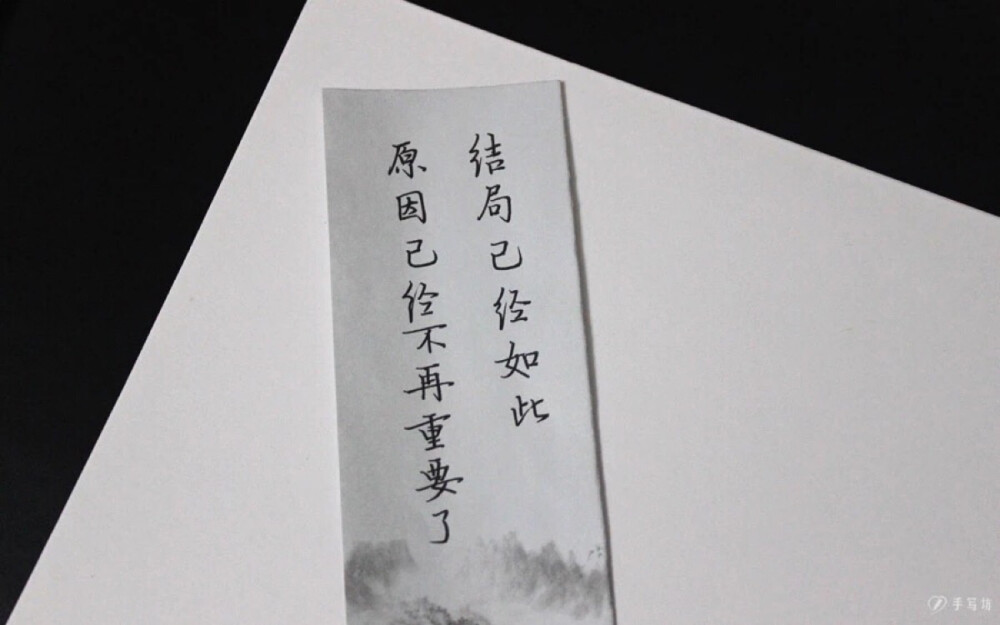 结局已经如此
原因已经不再重要了
手写坊